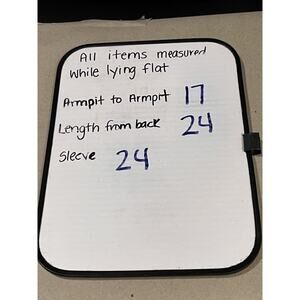 All items measured
while lying flat
Armpit to Armpit 17
Length from back 24
Sleeve 24